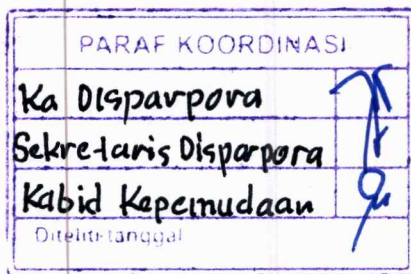 PARAF KOORDINASI
Ka Disparpora
Sekretaris Disparpora
Kabid Kepemudaan
Diteliti tanggal